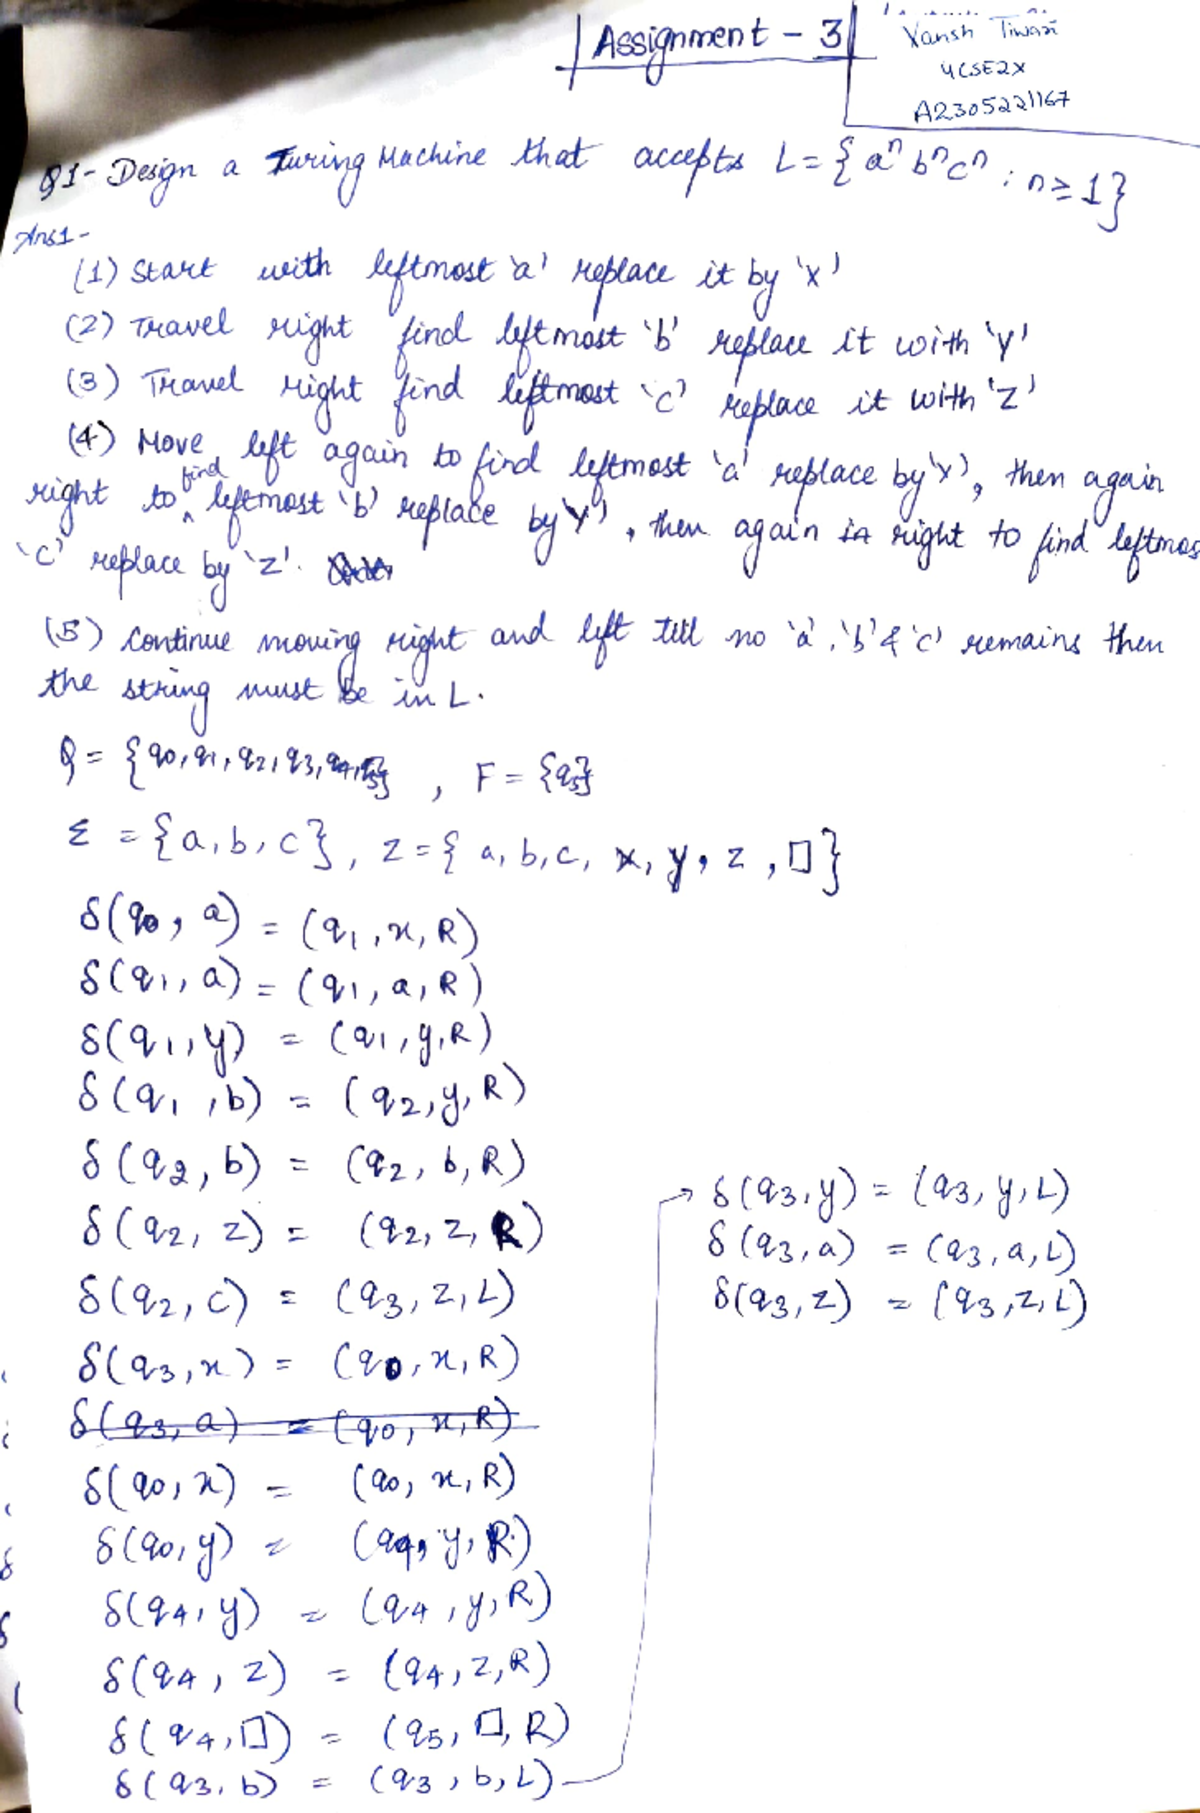 Assignment - 3
Vansh Tiwari
4CSE2X
A2305221167
Q1- Design a Turing Machine that accepts L = { aⁿ bⁿ cⁿ ; n ≥ 1 }
Ans1 -
(1) Start with leftmost 'a' replace it by 'x'
(2) Travel right find leftmost 'b' replace it with 'y'
(3) Travel right find leftmost 'c' replace it with 'z'
(4) Move left again to find leftmost 'a' replace by 'x', then again
right to find leftmost 'b' replace by 'y', then again in right to find leftmos
'c' replace by 'z'.
(5) Continue moving right and left till no 'a', 'b' & 'c' remains then
the string must be in L.
Q = {q0, q1, q2, q3, q4, q5} , F = {q5}
Σ = {a, b, c}, Z = { a, b, c, x, y, z, □}
δ(q0, a) = (q1, x, R)
δ(q1, a) = (q1, a, R)
δ(q1, y) = (q1, y, R)
δ(q1, b) = (q2, y, R)
δ(q2, b) = (q2, b, R)
δ(q2, z) = (q2, z, R)
δ(q2, c) = (q3, z, L)
δ(q3, x) = (q0, x, R)
δ(q3, a) = (q0, x, R)
δ(q0, x) = (q0, x, R)
δ(q0, y) = (q4, y, R)
δ(q4, y) = (q4, y, R)
δ(q4, z) = (q4, z, R)
δ(q4, □) = (q5, □, R)
δ(q3, b) = (q3, b, L)
→ δ(q3, y) = (q3, y, L)
δ(q3, a) = (q3, a, L)
δ(q3, z) = (q3, z, L)